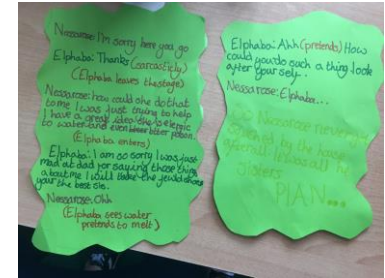 Nessarose: I'm sorry here you go
Elphaba: Thanks (sarcasticly)
(Elphaba leaves the stage)
Nessarose: how could she do that
to me I was just trying to help
I have a great idea she is allergic
to water and even
(Elphaba enters)
Elphaba: I am so sorry I was just
mad at dad for saying those thing
about me I will take the
your the best sis.
Nessarose: Ohh
(Elphaba sees water
pretends to melt)
Elphaba: Ahh (pretends) How
could you do such a thing look
after your self..
Nessarose: Elphaba...
Nessarose never
by the house
it was all
Sisters
PLAN...